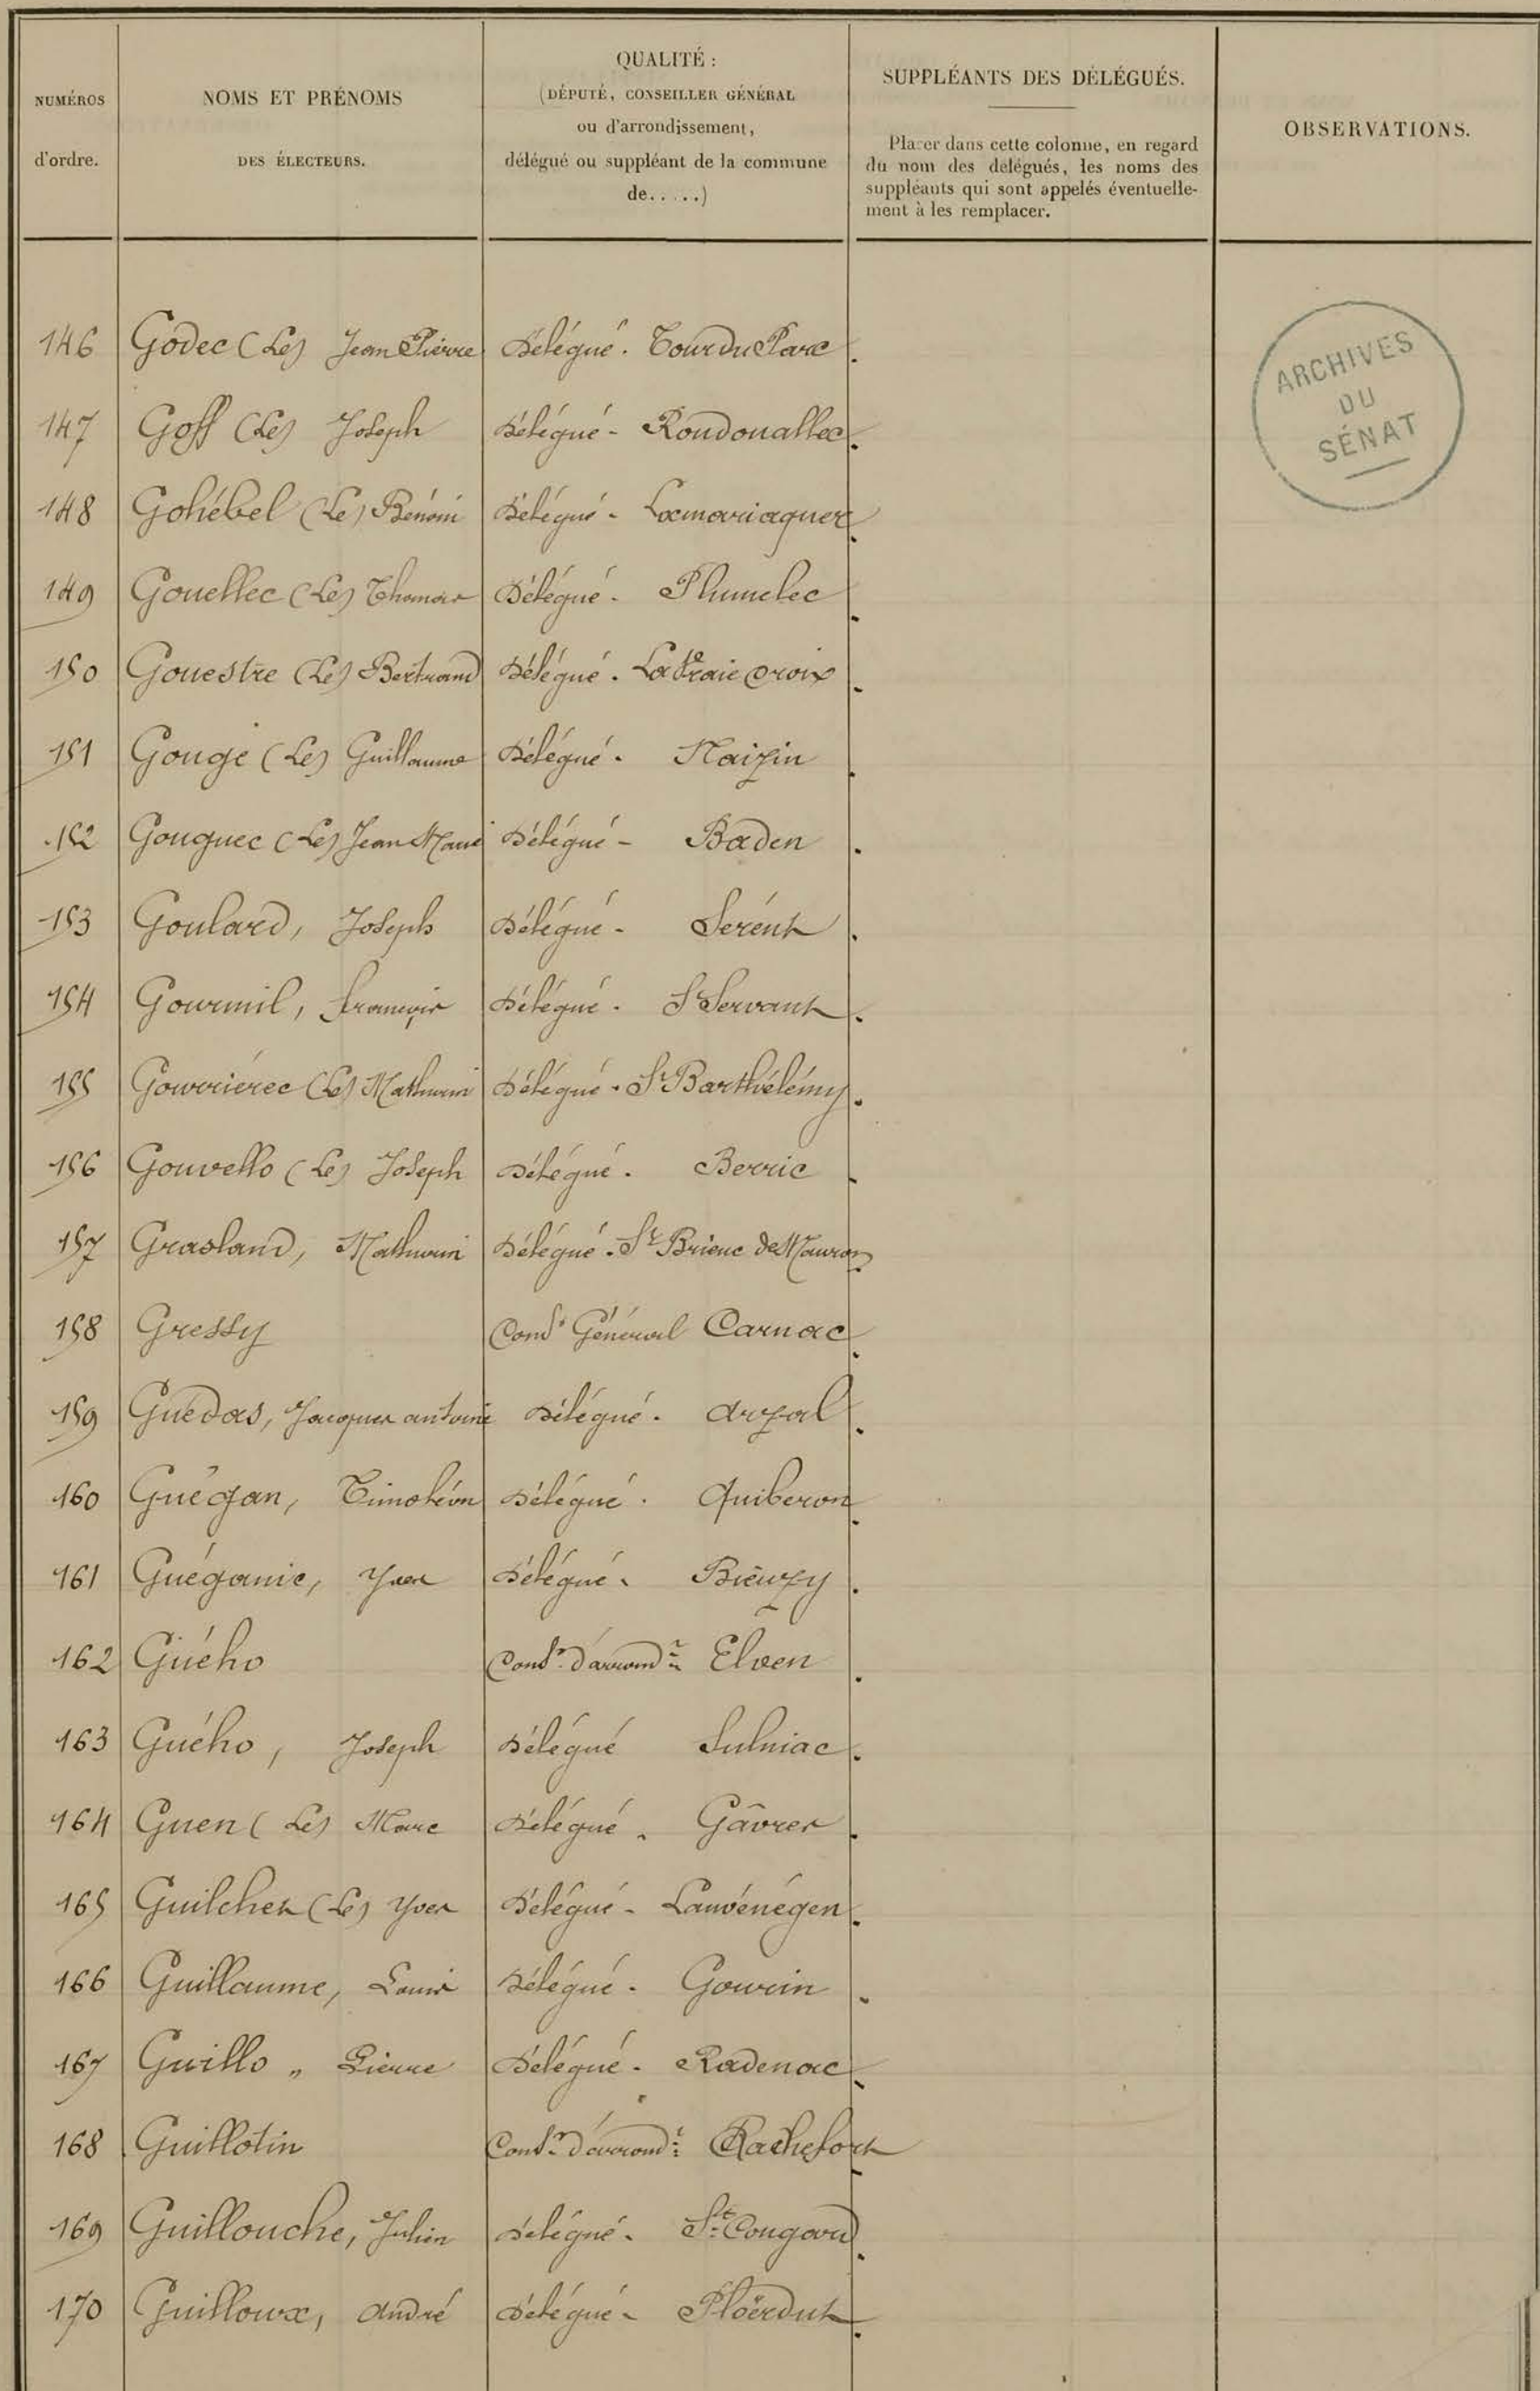 NUMÉROS
d'ordre.
NOMS ET PRÉNOMS
DES ÉLECTEURS.
QUALITÉ :
(DÉPUTÉ, CONSEILLER GÉNÉRAL
ou d'arrondissement,
délégué ou suppléant de la commune
de.....)
SUPPLÉANTS DES DÉLÉGUÉS.
Placer dans cette colonne, en regard
du nom des délégués, les noms des
suppléants qui sont appelés éventuelle-
ment à les remplacer.
OBSERVATIONS.
ARCHIVES
DU
SÉNAT
146 Godec (Le) Jean Pierre Délégué. Tour du Parc
147 Goff (Le) Joseph Délégué - Roudouallec
148 Gohébel (Le) Bénoni Délégué - Locmariaquer
149 Gouellec (Le) Thomas Délégué - Plumelec
150 Gouestre (Le) Bertrand Délégué. La Vraie Croix
151 Gougé (Le) Guillaume Délégué. Naizin
152 Gouguec (Le) Jean Marie Délégué - Baden
153 Goulard, Joseph Délégué - Sérent
154 Gourmil, François Délégué. St Servant
155 Gourriérec (Le) Mathurin Délégué. St Barthélémy
156 Gouvello (Le) Joseph Délégué. Berric
157 Grasland, Mathurin Délégué. St Brieuc de Mauron
158 Gressy Consr Général Carnac
159 Guédas, Jacques antoine Délégué. Arzal
160 Guégan, Timoléon Délégué. Quiberon
161 Guéganic, Yves Délégué. Bieuzy
162 Guého Consr d'arrondt Elven
163 Guého, Joseph Délégué Sulniac
164 Guen (Le) Marc Délégué. Gâvres
165 Guilcher (Le) Yves Délégué - Lanvénégen
166 Guillaume, Louis Délégué. Gourin
167 Guillo " Pierre Délégué - Radenac
168 Guillotin Consr d'arrondt Rochefort
169 Guillouche, Julien Délégué. St Congard
170 Guilloux, André Délégué - Ploërdut